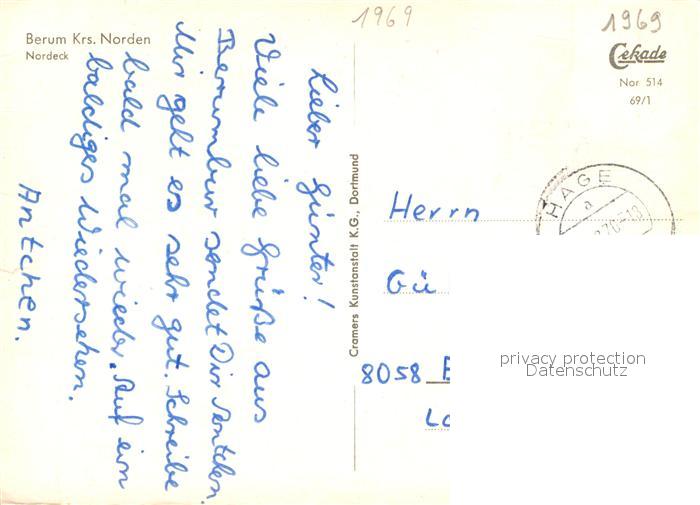 1969
1969
Berum Krs. Norden
Nordeck
Cekade
Nor 514
69/1
Lieber Günter!
Viele liebe Grüße aus
Berumbur sendet Dir Antchen.
Mir geht es sehr gut. Schreibe
bald mal wieder. Auf ein
baldiges Wiedersehen.
Antchen.
Cramers Kunstanstalt K.G., Dortmund
HAGE
a
Herrn
Gü
8058
privacy protection
Datenschutz